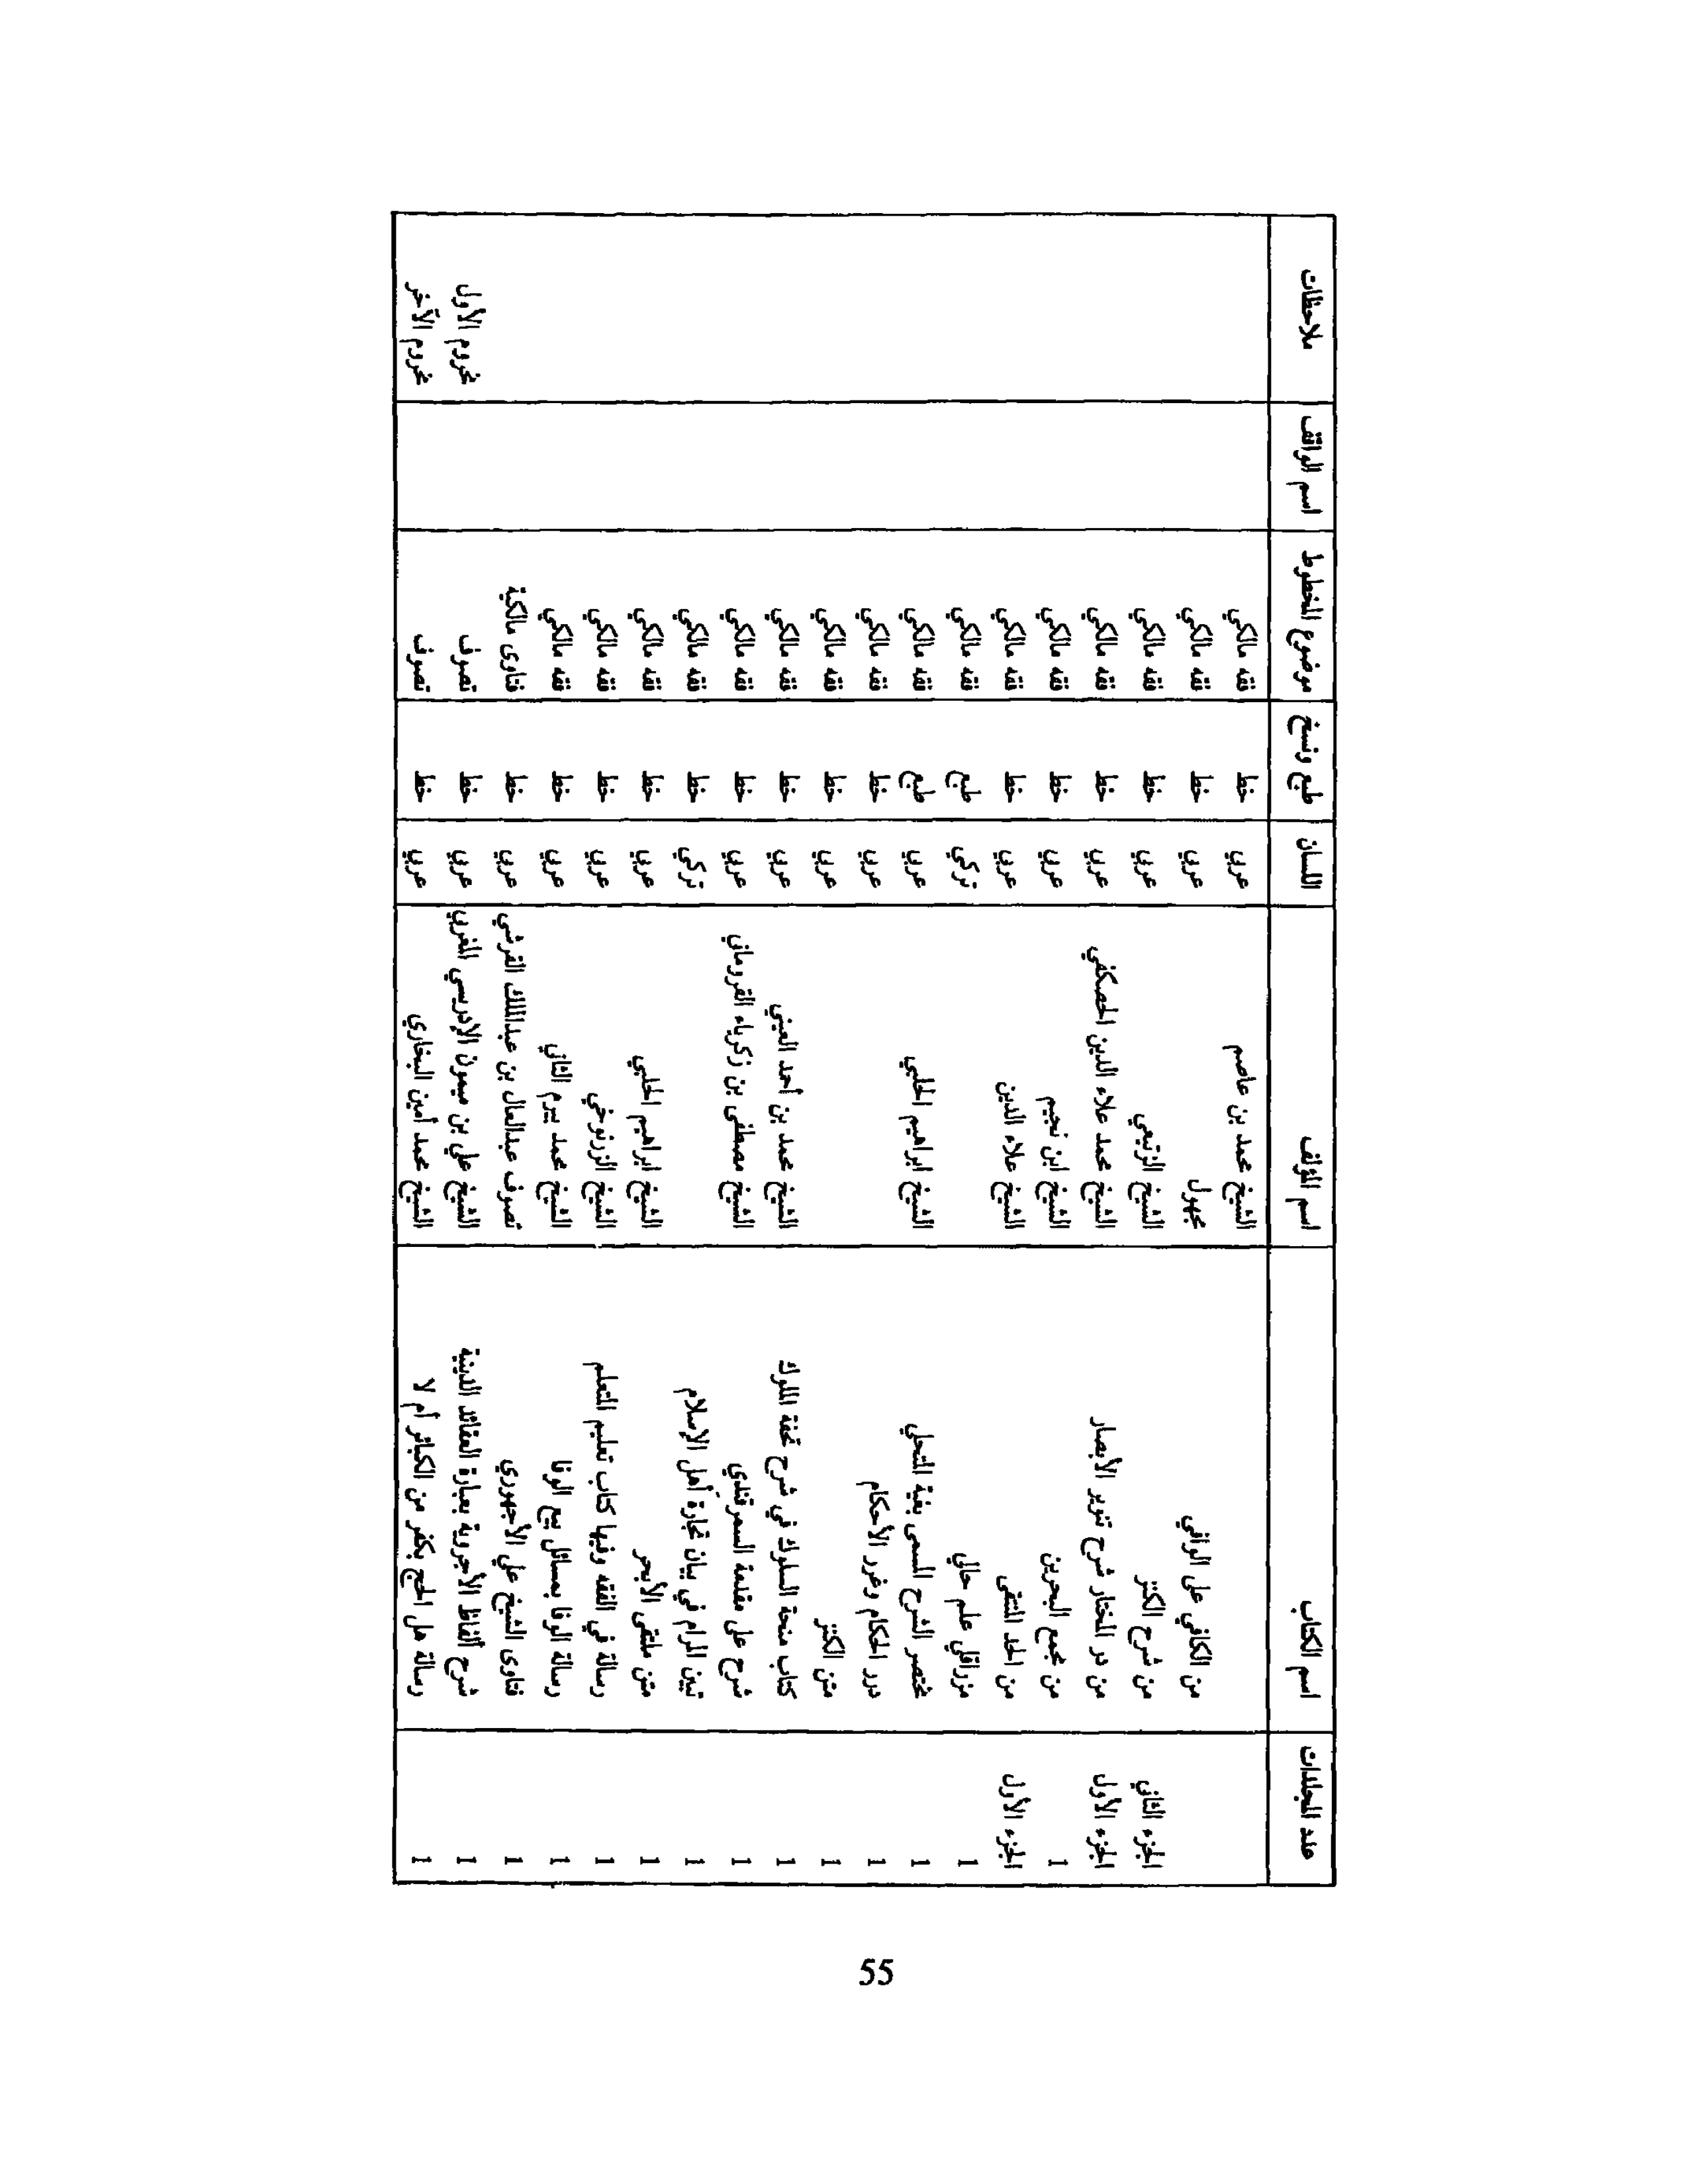 عدد المجلدات اسم الكتاب اسم المؤلف اللسان طبع ونسخ موضوع المخطوط اسم الواقف ملاحظات
الشيخ محمد بن عاصم عربي خط فقه مالكي
من الكافي على الوافي مجهول عربي خط فقه مالكي
الجزء الثاني من شرح الكنز الشيخ الزيعي عربي خط فقه مالكي
الجزء الأول من در المختار شرح تنوير الأبصار الشيخ محمد علاء الدين الحصكفي عربي خط فقه مالكي
1 من مجمع البحرين الشيخ ابن نجيم عربي خط فقه مالكي
الجزء الأول من الحد المنتقى الشيخ علاء الدين عربي خط فقه مالكي
1 مزراقلي علم حالي تركي طبع فقه مالكي
1 مختصر الشرح المسمى بغية المتحلي الشيخ ابراهيم الحلبي عربي طبع فقه مالكي
1 درر الحكام وغرر الأحكام عربي خط فقه مالكي
1 متن الكنز عربي خط فقه مالكي
1 كتاب منحة السلوك في شرح تحفة الملوك الشيخ محمد بن أحمد العيني عربي خط فقه مالكي
1 شرح على مقدمة السمرقندي الشيخ مصطفى بن زكرياء القروماني عربي خط فقه مالكي
1 تبين المرام في بيان تجارة أهل الإسلام تركي خط فقه مالكي
1 متن ملتقى الأبحر الشيخ ابراهيم الحلبي عربي خط فقه مالكي
1 رسالة في الفقه وفيها كتاب تعليم المتعلم الشيخ الزرنوخي عربي خط فقه مالكي
1 رسالة الوفا بمسائل بيع الوفا الشيخ محمد بيرم الثاني عربي خط فقه مالكي
1 فتاوى الشيخ علي الأجهوري تصوف عبدالعال بن عبدالملك القرشي عربي خط فتاوى مالكية
1 شرح ألفاظ الأجرومية بعبارة العقائد الدينية الشيخ علي بن ميمون الإدريسي المغربي عربي خط تصوف مخروم الأول
1 رسالة هل الحج يكفر من الكبائر أم لا الشيخ محمد أمين البخاري عربي خط تصوف مخروم الآخر
55